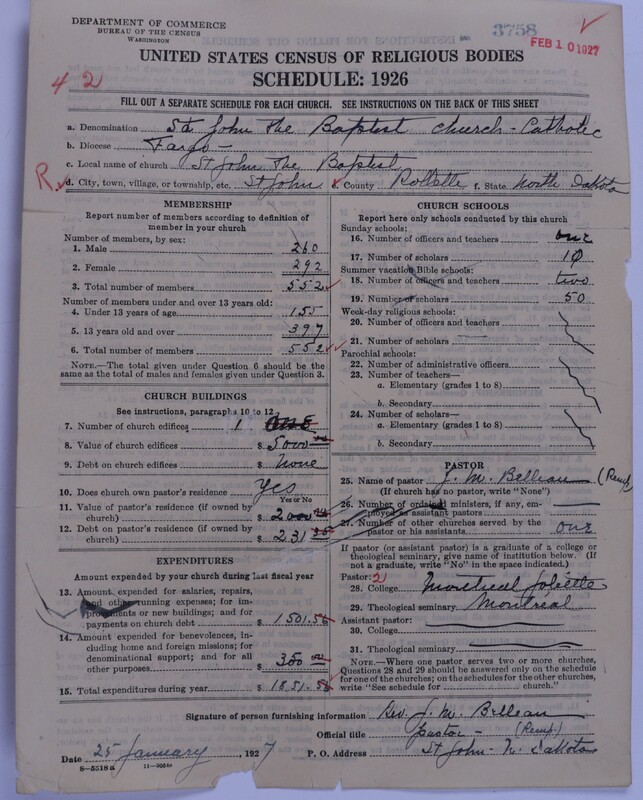 DEPARTMENT OF COMMERCE
BUREAU OF THE CENSUS
WASHINGTON
3758
FEB 10 1927
UNITED STATES CENSUS OF RELIGIOUS BODIES
SCHEDULE: 1926
42
FILL OUT A SEPARATE SCHEDULE FOR EACH CHURCH. SEE INSTRUCTIONS ON THE BACK OF THIS SHEET
a. Denomination St. John The Baptist Church - Catholic
b. Diocese Fargo -
c. Local name of church St John The Baptist
R d. City, town, village, or township, etc. St John e. County Rollette f. State North Dakota
MEMBERSHIP
Report number of members according to definition of member in your church
Number of members, by sex:
1. Male 260
2. Female 292
3. Total number of members 552
Number of members under and over 13 years old:
4. Under 13 years of age 155
5. 13 years old and over 397
6. Total number of members 552
NOTE.—The total given under Question 6 should be the same as the total of males and females given under Question 3.
CHURCH BUILDINGS
See instructions, paragraphs 10 to 12
7. Number of church edifices 1
8. Value of church edifices $ 5000
9. Debt on church edifices $ None
10. Does church own pastor's residence Yes
Yes or No
11. Value of pastor's residence (if owned by church) $ 2000
12. Debt on pastor's residence (if owned by church) $ 231
EXPENDITURES
Amount expended by your church during last fiscal year
13. Amount expended for salaries, repairs, and other running expenses; for improvements or new buildings; and for payments on church debt $ 1501.58
14. Amount expended for benevolences, including home and foreign missions; for denominational support; and for all other purposes $ 350
15. Total expenditures during year $ 1851.58
CHURCH SCHOOLS
Report here only schools conducted by this church
Sunday schools:
16. Number of officers and teachers one
17. Number of scholars 10
Summer vacation Bible schools:
18. Number of officers and teachers two
19. Number of scholars 50
Week-day religious schools:
20. Number of officers and teachers
21. Number of scholars
Parochial schools:
22. Number of administrative officers
23. Number of teachers—
a. Elementary (grades 1 to 8)
b. Secondary
24. Number of scholars—
a. Elementary (grades 1 to 8)
b. Secondary
PASTOR
25. Name of pastor J. M. Belleau
(If church has no pastor, write "None")
26. Number of ordained ministers, if any, employed as assistant pastors
27. Number of other churches served by the pastor or his assistants one
If pastor (or assistant pastor) is a graduate of a college or theological seminary, give name of institution below. (If not a graduate, write "No" in the space indicated.)
Pastor: 2
28. College Montreal Joliette
29. Theological seminary Montreal
Assistant pastor:
30. College
31. Theological seminary
NOTE.—Where one pastor serves two or more churches, Questions 28 and 29 should be answered only on the schedule for one of the churches; on the schedules for the other churches, write "See schedule for church."
Signature of person furnishing information Rev. J. M. Belleau
Official title Pastor -
Date 25 January 1927 P. O. Address St John - N. Dakota
8-5518a